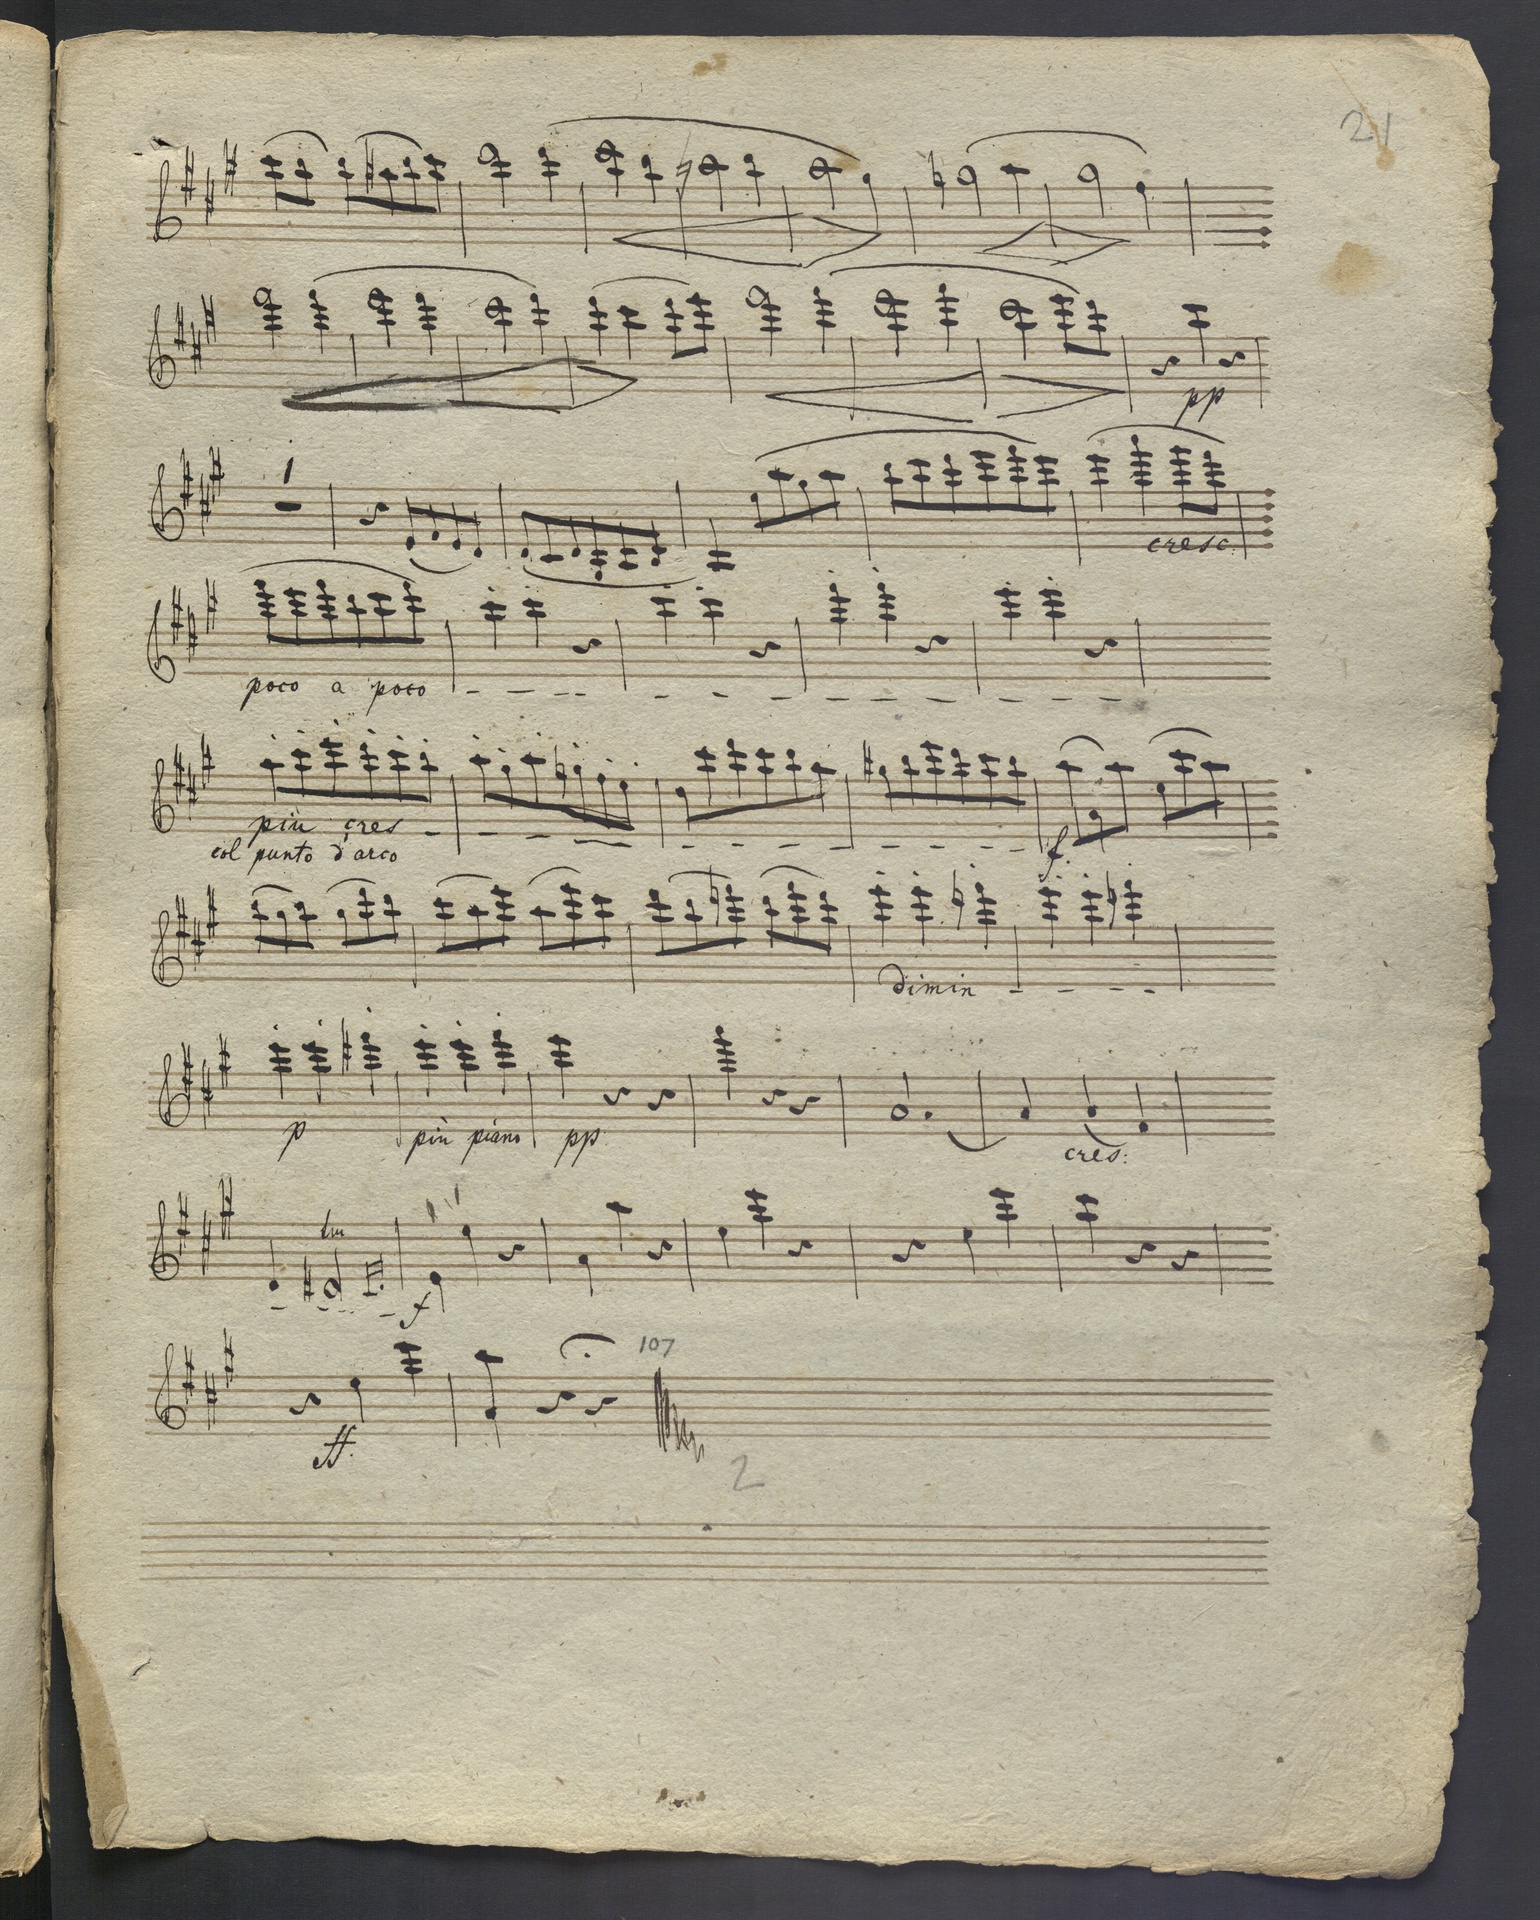 21
pp
1
cresc:
poco a poco
più cres
col punto d'arco
f.
dimin
p più piano pp
cres:
tr
f
107
ff.
2